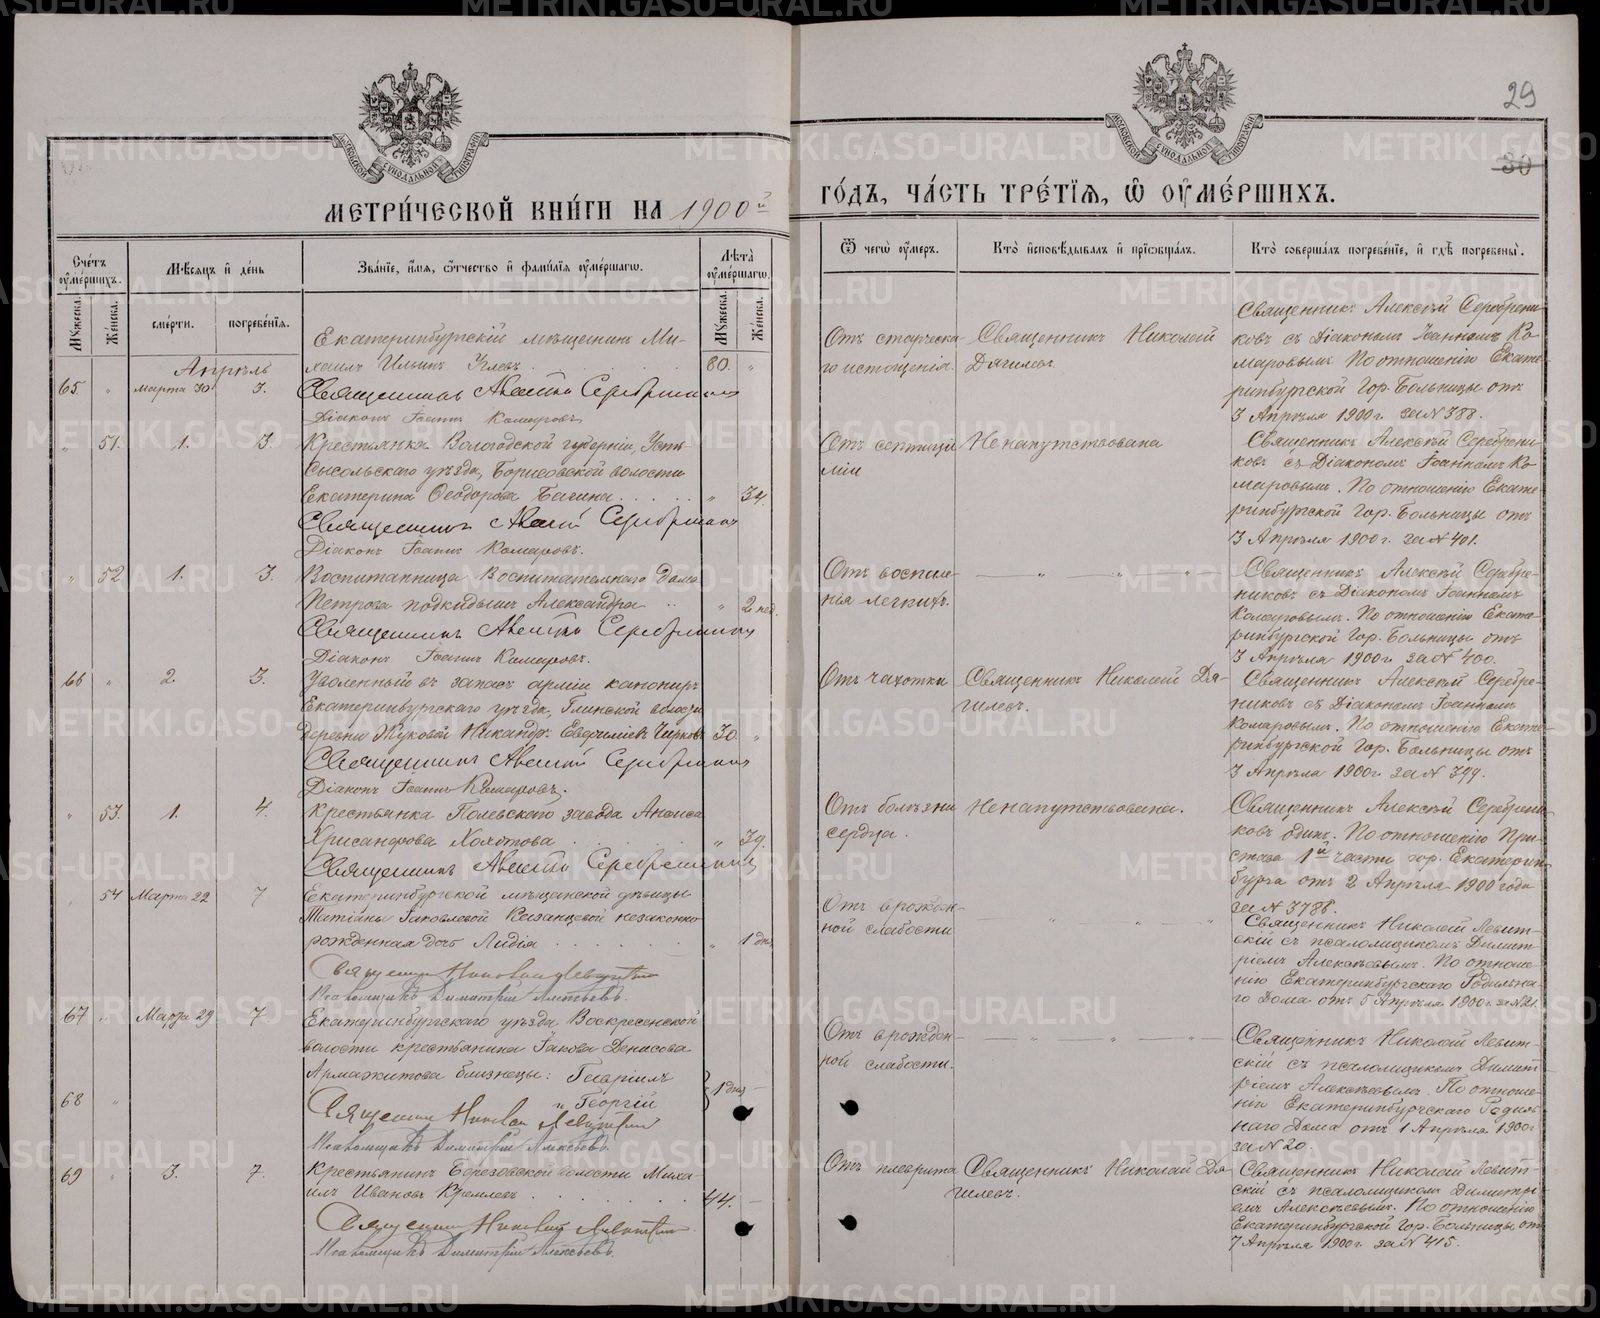 29
30
МЕТРИ́ЧЕСКОЙ КНИ́ГИ НА 1900й
ГО́ДЪ, ЧА́СТЬ ТРЕ́ТІѦ, Ѡ҆ ОУ҆МЕ́РШИХЪ.
Счетъ оумершихъ.
Мужеска.
Женска.
Мѣсяцъ и день
смерти.
погребенія.
Званіе, имя, отчество и фамилія оумершаго.
Лѣта оумершаго.
Мужеска.
Женска.
Ѿ чего оумеръ.
Кто исповѣдывалъ и пріобщалъ.
Кто совершалъ погребеніе, и гдѣ погребены.
Апрѣль
65 " Марта 30 3.
Екатеринбургскій мѣщанинъ Ми-
хаилъ Ильинъ Углевъ 80. "
Священникъ Алексѣй Серебрениковъ
Діаконъ Іоаннъ Комаровъ
Отъ старческа-
го истощенія.
Священникъ Николай
Дягилевъ.
Священникъ Алексѣй Серебрени-
ковъ съ Діакономъ Іоанномъ Ко-
маровымъ. По отношенію Екате-
ринбургской Гор. Больницы отъ
3 Апрѣля 1900 г. за № 388.
" 51. 1. 3.
Крестьянка Вологодской губерніи, Усть-
Сысольскаго уѣзда, Борисовской волости
Екатерина Ѳеодорова Багина " 34.
Священникъ Алексѣй Серебрениковъ
Діаконъ Іоаннъ Комаровъ.
Отъ септице-
міи
Не напутствована
Священникъ Алексѣй Серебрени-
ковъ съ Діакономъ Іоанномъ Ко-
маровымъ. По отношенію Екате-
ринбургской Гор. Больницы отъ
3 Апрѣля 1900 г. за № 401.
" 52 1. 3.
Воспитанница Воспитательнаго дома
Петрова подкидышъ Александра " 2 нед.
Священникъ Алексѣй Серебрениковъ
Діаконъ Іоаннъ Комаровъ.
Отъ воспале-
нія легкихъ.
— " — " — " —
Священникъ Алексѣй Серебре-
никовъ съ Діакономъ Іоанномъ
Комаровымъ. По отношенію Екате-
ринбургской Гор. Больницы отъ
3 Апрѣля 1900 г. за № 400.
66 " 2 3.
Уволенный въ запасъ арміи канониръ
Екатеринбургскаго уѣзда, Глинской волости
деревни Жуковой Никандръ Чирковъ 30. "
Священникъ Алексѣй Серебрениковъ
Діаконъ Іоаннъ Комаровъ.
Отъ чахотки
Священникъ Николай Дя-
гилевъ.
Священникъ Алексѣй Серебре-
никовъ съ Діакономъ Іоанномъ
Комаровымъ. По отношенію Екате-
ринбургской Гор. Больницы отъ
3 Апрѣля 1900 г. за № 399.
" 53. 1. 4.
Крестьянка Полевскаго завода Анфиса
Хрисанфова " 39.
Священникъ Алексѣй Серебрениковъ
Отъ болѣзни
сердца.
Не напутствована.
Священникъ Алексѣй Серебрени-
ковъ одинъ. По отношенію При-
става 1й части гор. Екатерин-
бурга отъ 2 Апрѣля 1900 года
за № 3788.
54 Марта 22 7
Екатеринбургской мѣщанской дѣвицы
Татіаны Іаковлевой Казанцевой незаконно-
рожденная дочь Лидія " 1 дня
Священникъ Николай Левитскій
Псаломщикъ Димитрій Алексѣевъ.
Отъ врожден-
ной слабости
— " — " — " —
Священникъ Николай Левит-
скій съ псаломщикомъ Димит-
ріемъ Алексѣевымъ. По отноше-
нію Екатеринбургскаго Родильна-
го Дома отъ 5 Апрѣля 1900 г. за № 21.
67 " Марта 29 7.
Екатеринбургскаго уѣзда Воскресенской
волости крестьянина Іакова Денисова
близнецы: Гавріилъ
68 " " Георгій 1 дня —
Священникъ Николай Левитскій
Псаломщикъ Димитрій Алексѣевъ.
Отъ врожден-
ной слабости.
— " — " — " —
Священникъ Николай Левит-
скій съ псаломщикомъ Димит-
ріемъ Алексѣевымъ. По отноше-
нію Екатеринбургскаго Родиль-
наго Дома отъ 1 Апрѣля 1900 г.
за № 20.
69 " 3. 7.
Крестьянинъ Березовской волости Миха-
илъ Ивановъ Кремлевъ 44. —
Священникъ Николай Левитскій
Псаломщикъ Димитрій Алексѣевъ.
Отъ плеврита
Священникъ Николай Дя-
гилевъ.
Священникъ Николай Левит-
скій съ псаломщикомъ Димитрі-
емъ Алексѣевымъ. По отношенію
Екатеринбургской Гор. Больницы отъ
7 Апрѣля 1900 г. за № 415.
METRIKI.GASO-URAL.RU